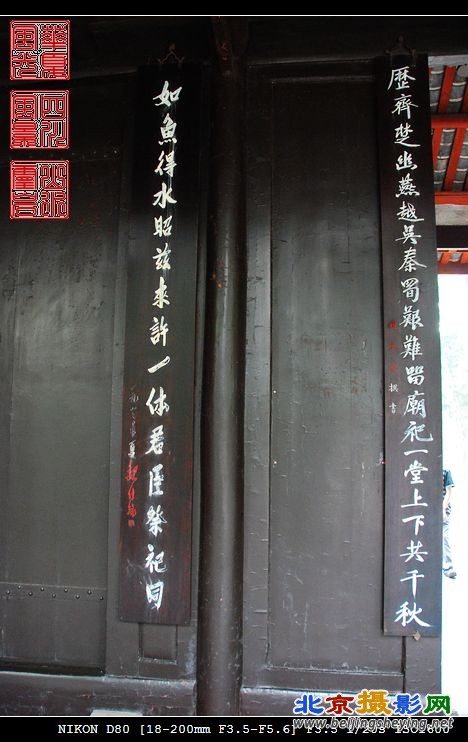 歷齊楚幽燕越吳秦蜀艱難留廟祀一堂上下共千秋
撰書
如魚得水昭茲來許一体君臣祭祀同
北京摄影网
www.beijingsheying.net
NIKON D80 [18-200mm F3.5-F5.6] F3.5